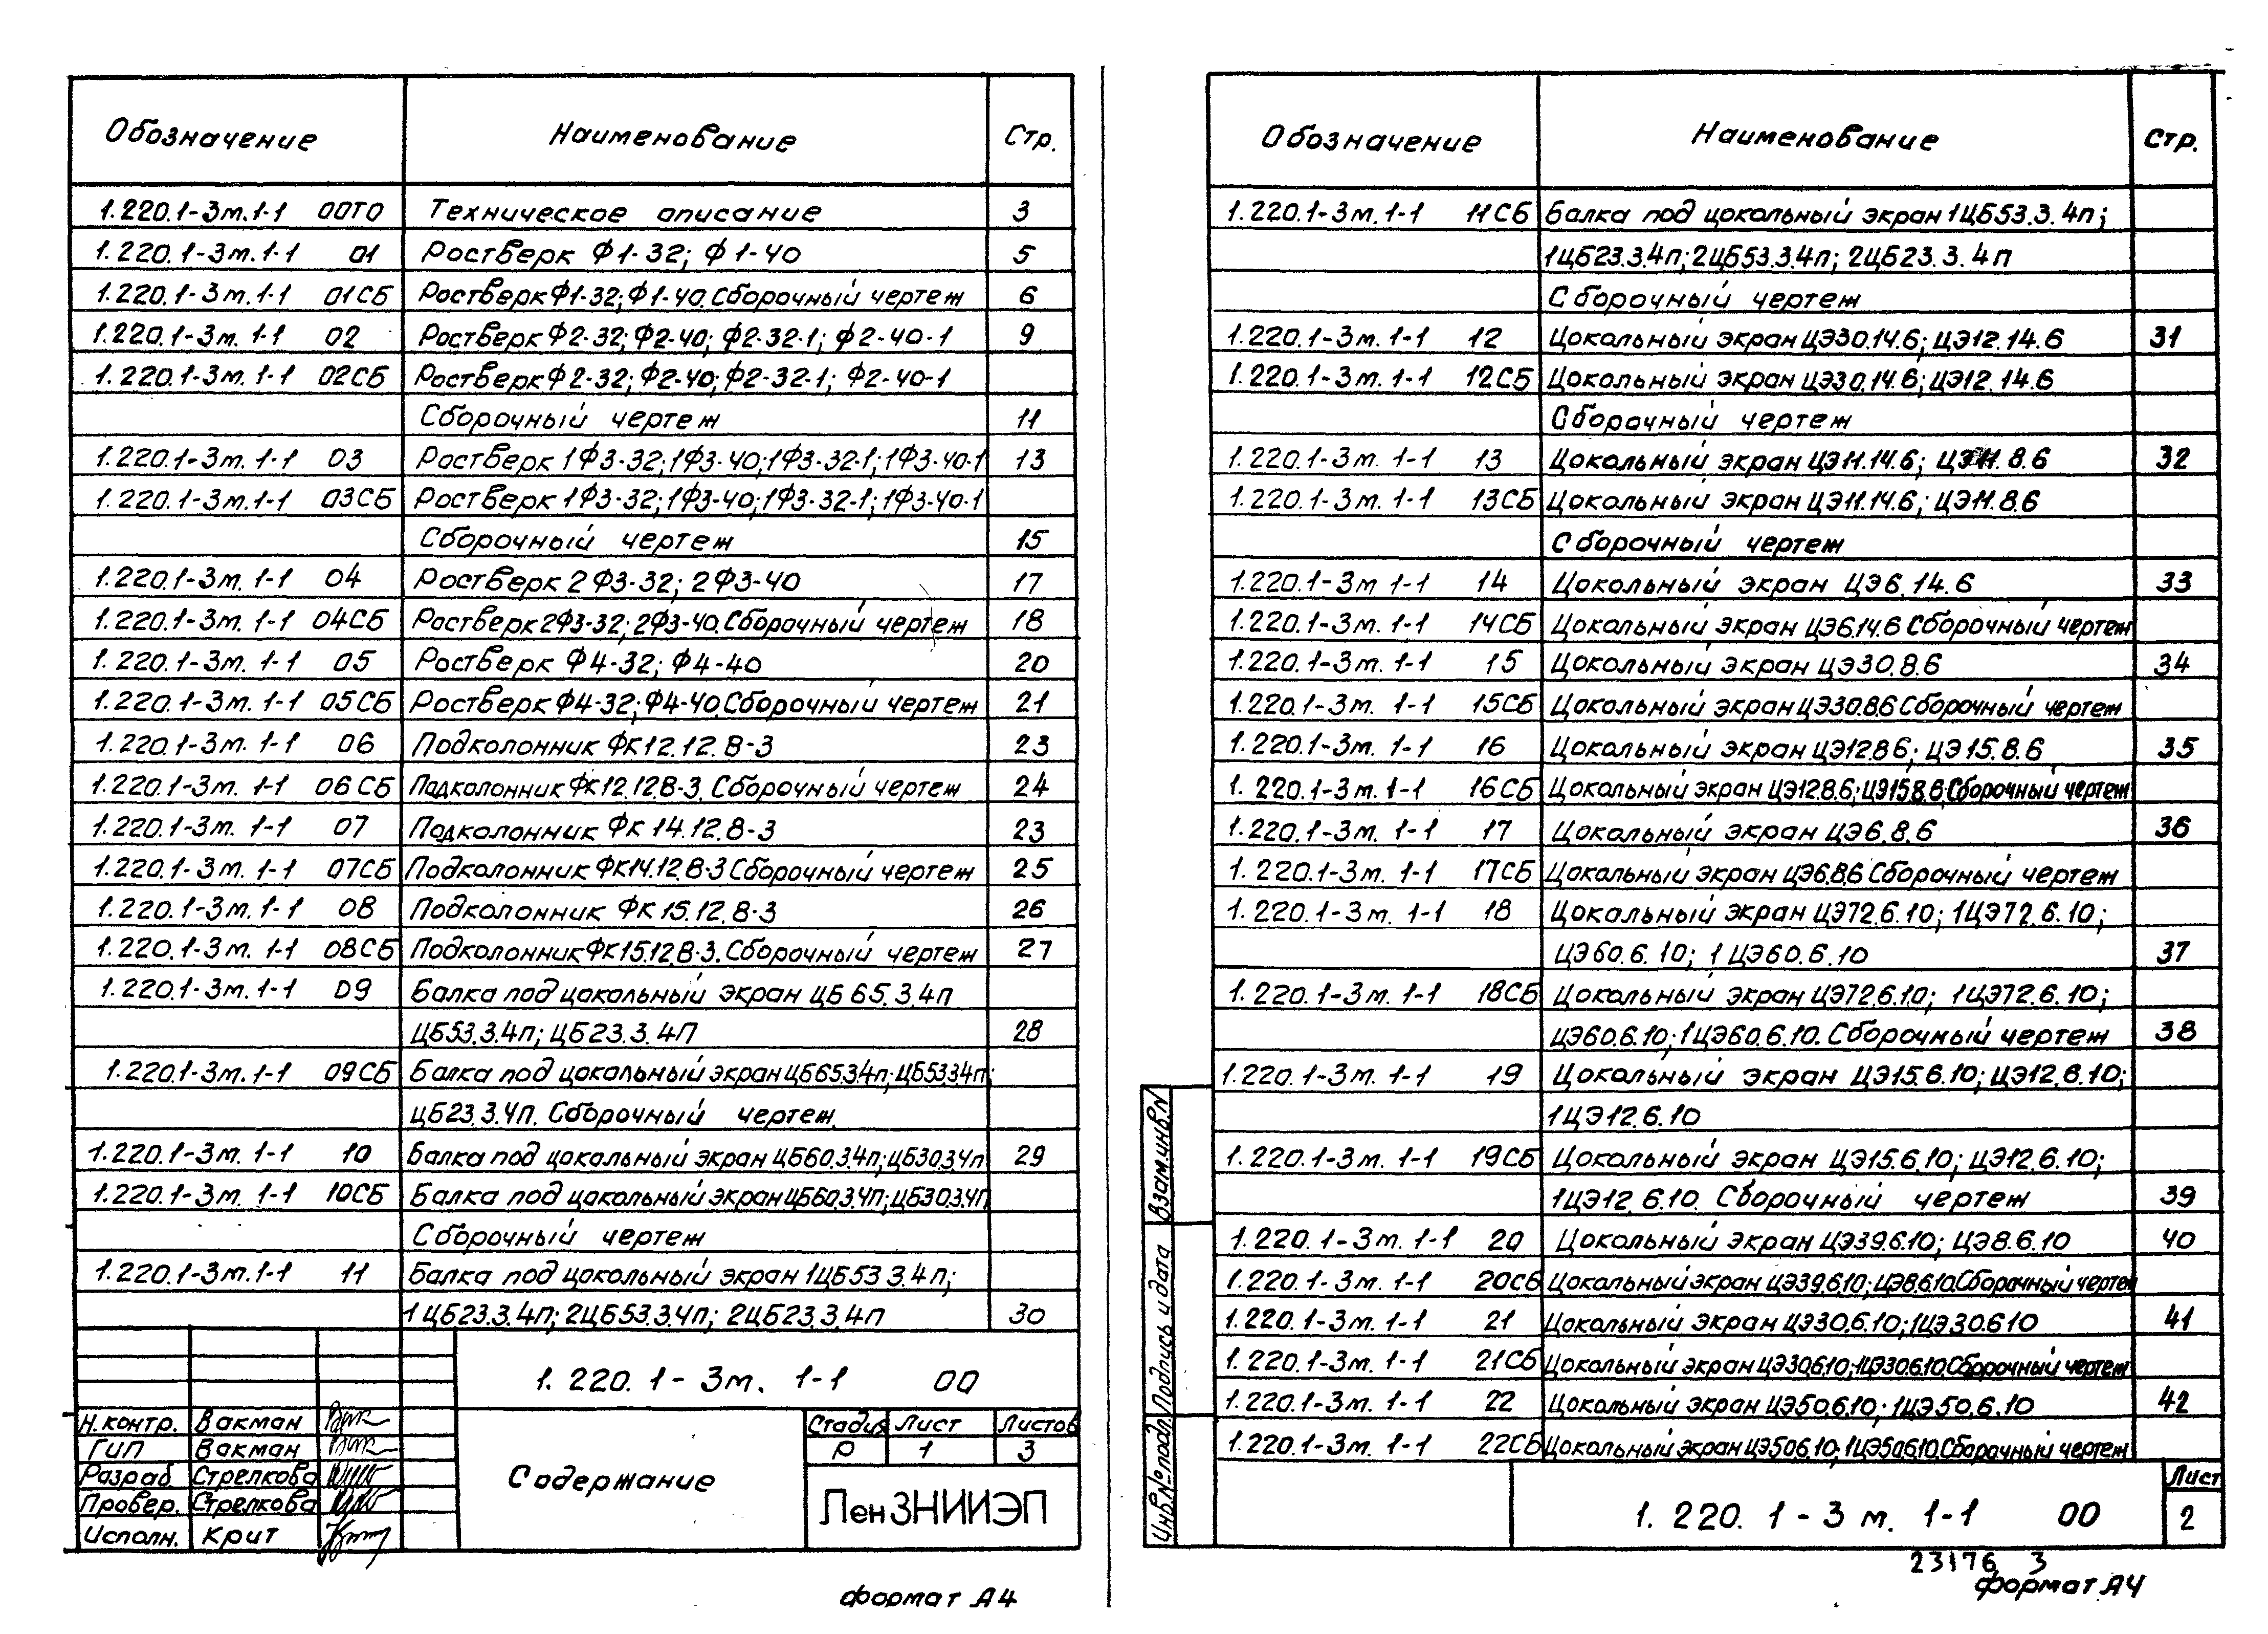 Обозначение Наименование Стр.
1.220.1-3м.1-1 00ТО Техническое описание 3
1.220.1-3м.1-1 01 Ростверк Ф1-32; Ф1-40 5
1.220.1-3м.1-1 01СБ Ростверк Ф1-32; Ф1-40. Сборочный чертеж 6
1.220.1-3м.1-1 02 Ростверк Ф2-32; Ф2-40; Ф2-32-1; Ф2-40-1 9
1.220.1-3м.1-1 02СБ Ростверк Ф2-32; Ф2-40; Ф2-32-1; Ф2-40-1
Сборочный чертеж 11
1.220.1-3м.1-1 03 Ростверк 1Ф3-32; 1Ф3-40; 1Ф3-32-1; 1Ф3-40-1 13
1.220.1-3м.1-1 03СБ Ростверк 1Ф3-32; 1Ф3-40; 1Ф3-32-1; 1Ф3-40-1
Сборочный чертеж 15
1.220.1-3м.1-1 04 Ростверк 2Ф3-32; 2Ф3-40 17
1.220.1-3м.1-1 04СБ Ростверк 2Ф3-32; 2Ф3-40. Сборочный чертеж 18
1.220.1-3м.1-1 05 Ростверк Ф4-32; Ф4-40 20
1.220.1-3м.1-1 05СБ Ростверк Ф4-32; Ф4-40. Сборочный чертеж 21
1.220.1-3м.1-1 06 Подколонник ФК12.12.8-3 23
1.220.1-3м.1-1 06СБ Подколонник ФК12.12.8-3. Сборочный чертеж 24
1.220.1-3м.1-1 07 Подколонник ФК14.12.8-3 23
1.220.1-3м.1-1 07СБ Подколонник ФК14.12.8-3 Сборочный чертеж 25
1.220.1-3м.1-1 08 Подколонник ФК15.12.8-3 26
1.220.1-3м.1-1 08СБ Подколонник ФК15.12.8-3. Сборочный чертеж 27
1.220.1-3м.1-1 09 Балка под цокольный экран ЦБ65.3.4п
ЦБ53.3.4п; ЦБ23.3.4П 28
1.220.1-3м.1-1 09СБ Балка под цокольный экран ЦБ65.3.4п; ЦБ53.3.4п;
ЦБ23.3.4п. Сборочный чертеж
1.220.1-3м.1-1 10 Балка под цокольный экран ЦБ60.3.4п; ЦБ30.3.4п 29
1.220.1-3м.1-1 10СБ Балка под цокольный экран ЦБ60.3.4п; ЦБ30.3.4п
Сборочный чертеж
1.220.1-3м.1-1 11 Балка под цокольный экран 1ЦБ53 3.4п;
1ЦБ23.3.4п; 2ЦБ53.3.4п; 2ЦБ23.3.4п 30
1.220.1-3м.1-1 00
Н.контр. Вакман
ГИП Вакман
Разраб Стрелкова
Провер. Стрелкова
Исполн. Крит
Содержание
Стадия Лист Листов
Р 1 3
ЛенЗНИИЭП
формат А4
Обозначение Наименование Стр.
1.220.1-3м.1-1 11СБ Балка под цокольный экран 1ЦБ53.3.4п;
1ЦБ23.3.4п; 2ЦБ53.3.4п; 2ЦБ23.3.4п
Сборочный чертеж
1.220.1-3м.1-1 12 Цокольный экран ЦЭ30.14.6; ЦЭ12.14.6 31
1.220.1-3м.1-1 12СБ Цокольный экран ЦЭ30.14.6; ЦЭ12.14.6
Сборочный чертеж
1.220.1-3м.1-1 13 Цокольный экран ЦЭ11.14.6; ЦЭ11.8.6 32
1.220.1-3м.1-1 13СБ Цокольный экран ЦЭ11.14.6; ЦЭ11.8.6
Сборочный чертеж
1.220.1-3м 1-1 14 Цокольный экран ЦЭ6.14.6 33
1.220.1-3м.1-1 14СБ Цокольный экран ЦЭ6.14.6 Сборочный чертеж
1.220.1-3м.1-1 15 Цокольный экран ЦЭ30.8.6 34
1.220.1-3м.1-1 15СБ Цокольный экран ЦЭ30.8.6 Сборочный чертеж
1.220.1-3м.1-1 16 Цокольный экран ЦЭ12.8.6; ЦЭ15.8.6 35
1.220.1-3м.1-1 16СБ Цокольный экран ЦЭ12.8.6; ЦЭ15.8.6 Сборочный чертеж
1.220.1-3м.1-1 17 Цокольный экран ЦЭ6.8.6 36
1.220.1-3м.1-1 17СБ Цокольный экран ЦЭ6.8.6 Сборочный чертеж
1.220.1-3м.1-1 18 Цокольный экран ЦЭ72.6.10; 1ЦЭ72.6.10;
ЦЭ60.6.10; 1ЦЭ60.6.10 37
1.220.1-3м.1-1 18СБ Цокольный экран ЦЭ72.6.10; 1ЦЭ72.6.10;
ЦЭ60.6.10; 1ЦЭ60.6.10. Сборочный чертеж 38
1.220.1-3м.1-1 19 Цокольный экран ЦЭ15.6.10; ЦЭ12.6.10;
1ЦЭ12.6.10
1.220.1-3м.1-1 19СБ Цокольный экран ЦЭ15.6.10; ЦЭ12.6.10;
1ЦЭ12.6.10. Сборочный чертеж 39
1.220.1-3м.1-1 20 Цокольный экран ЦЭ39.6.10; ЦЭ8.6.10 40
1.220.1-3м.1-1 20СБ Цокольный экран ЦЭ39.6.10; ЦЭ8.6.10. Сборочный чертеж
1.220.1-3м.1-1 21 Цокольный экран ЦЭ30.6.10; 1ЦЭ30.6.10 41
1.220.1-3м.1-1 21СБ Цокольный экран ЦЭ30.6.10; 1ЦЭ30.6.10. Сборочный чертеж
1.220.1-3м.1-1 22 Цокольный экран ЦЭ50.6.10; 1ЦЭ50.6.10 42
1.220.1-3м.1-1 22СБ Цокольный экран ЦЭ50.6.10; 1ЦЭ50.6.10. Сборочный чертеж
Взам.инв.N
Подпись и дата
Инв.№подл.
1.220.1-3м.1-1 00
Лист
2
23176 3
формат А4